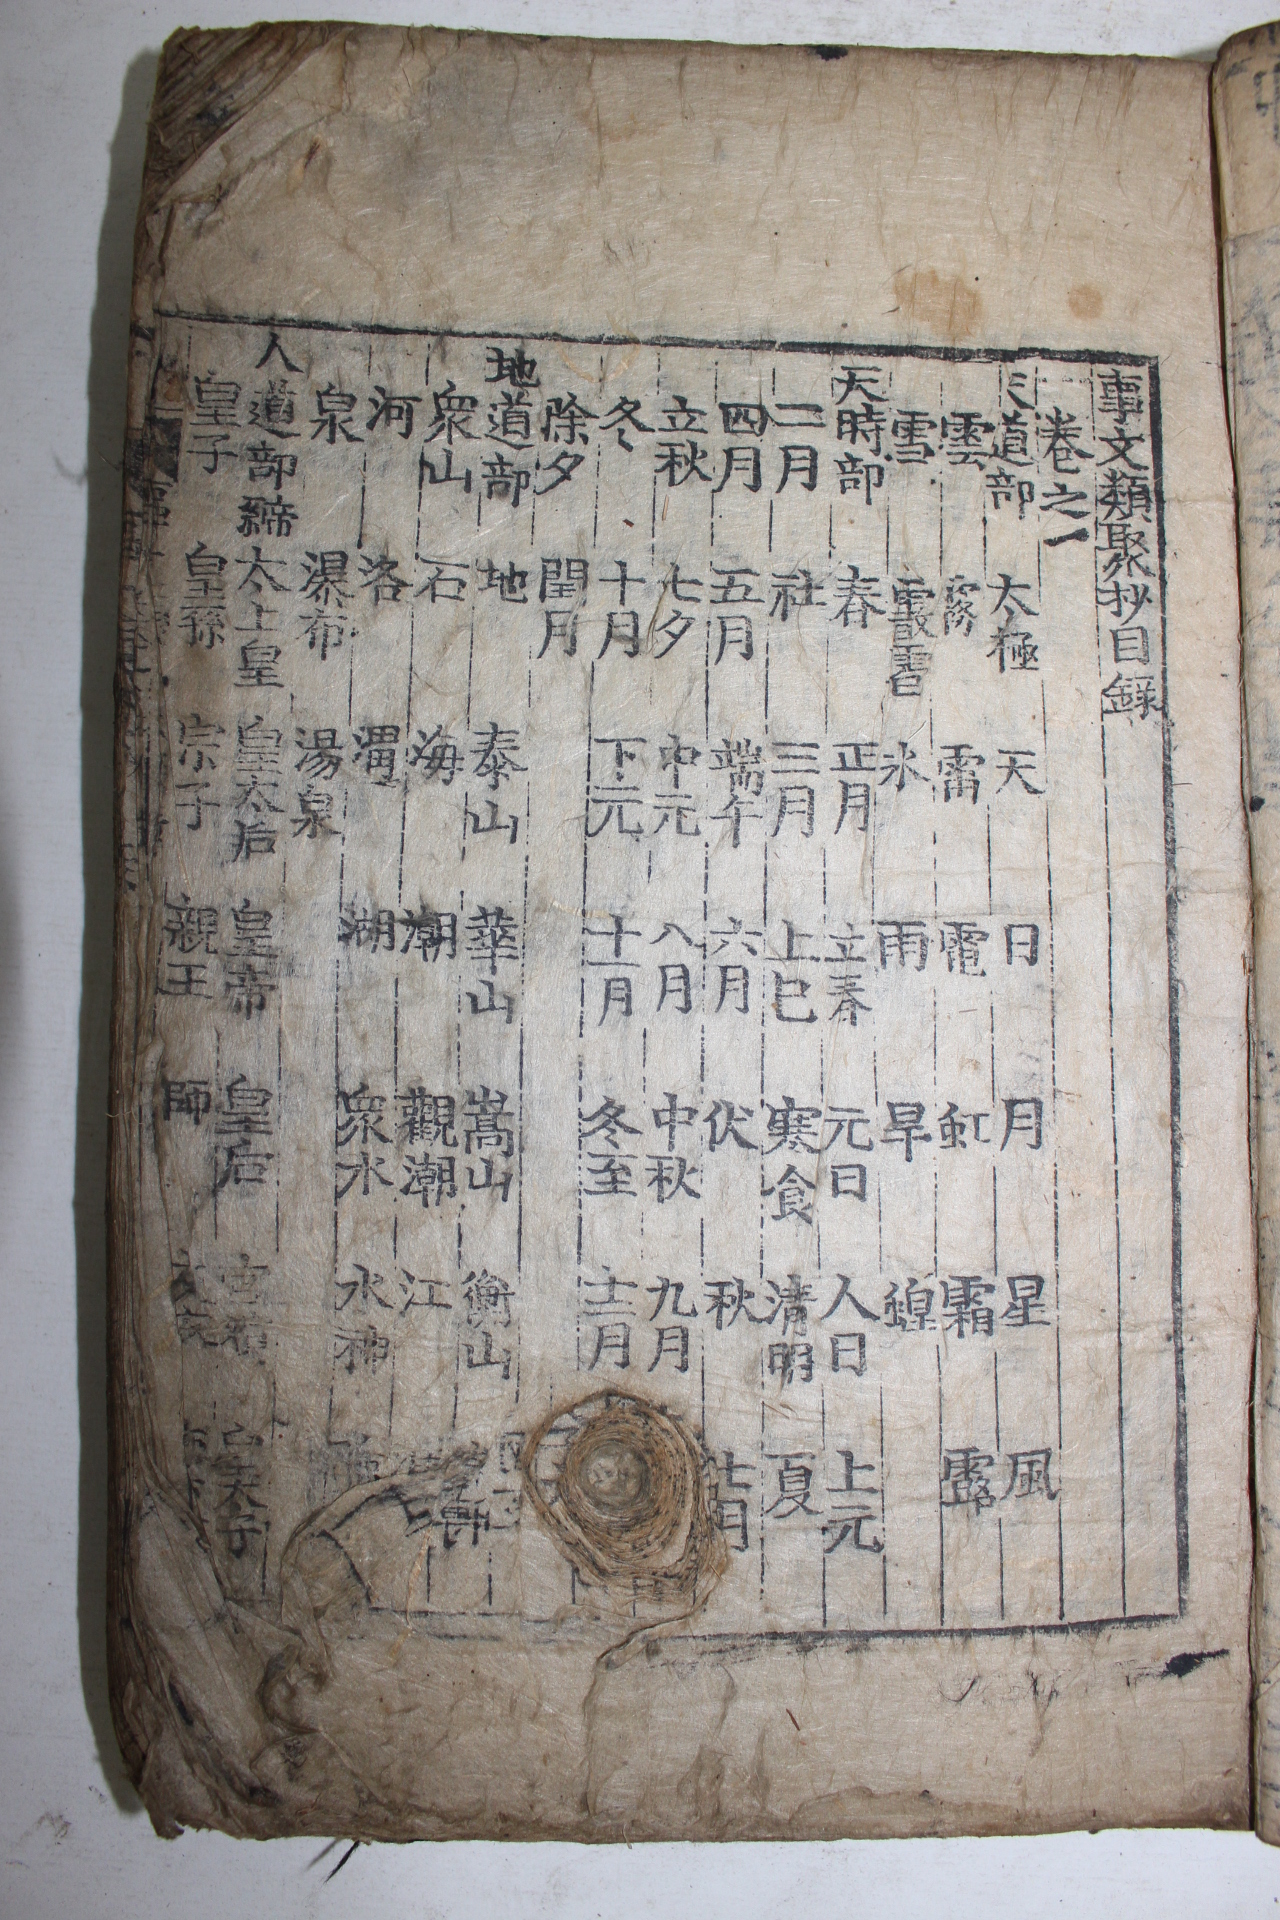 事文類聚抄目錄
卷之一
天道部 太極 天 日 月 星 風
雲 霧 雷 電 虹 霜 露
雪 霰雹 氷 雨 旱 蝗
天時部 春 正月 立春 元日 人日 上元
二月 社 三月 上巳 寒食 清明 夏
四月 五月 端午 六月 伏 秋 七月
立秋 七夕 中元 八月 中秋 九月
冬 十月 下元 十一月 冬至 十二月
除夕 閏月
地道部 地 泰山 華山 嵩山 衡山
衆山 石 海 潮 觀潮 江
河 洛 渭 湖 衆水 水神
泉 瀑布 湯泉
人道部 締 太上皇 皇太后 皇帝 皇后 太子
皇子 皇孫 宗子 親王 師